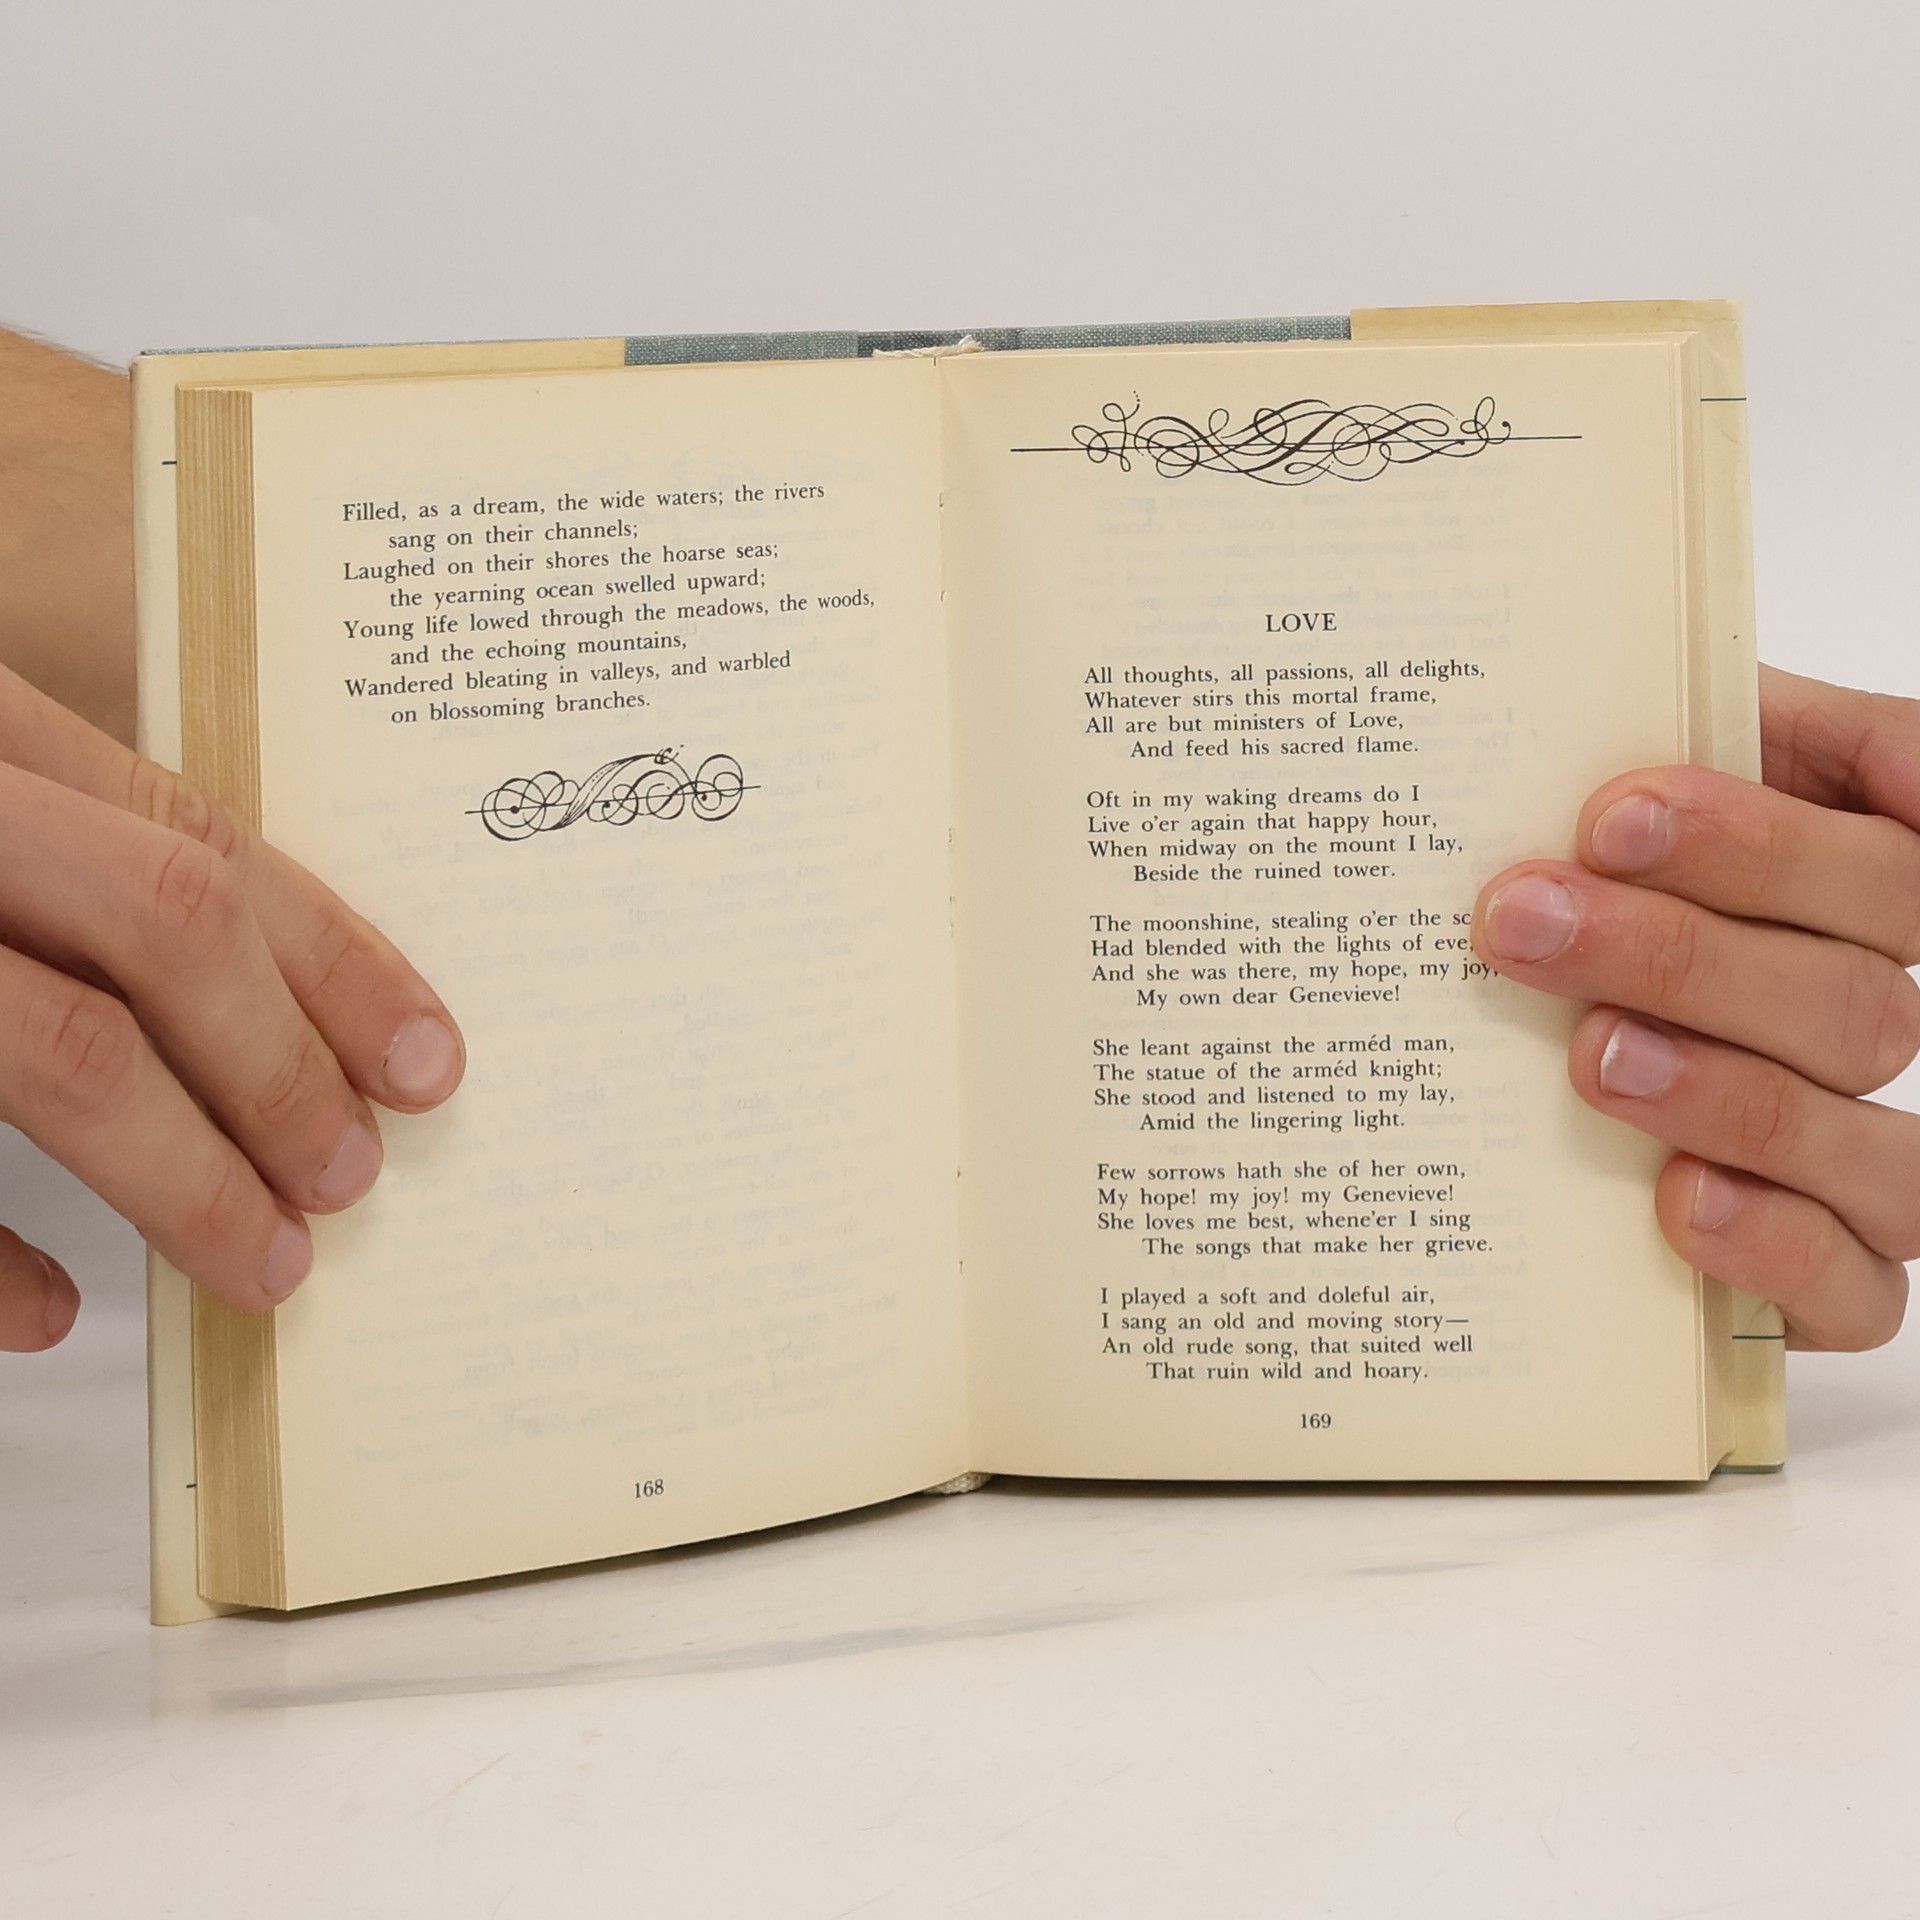 Filled, as a dream, the wide waters; the rivers
sang on their channels;
Laughed on their shores the hoarse seas;
the yearning ocean swelled upward;
Young life lowed through the meadows, the woods,
and the echoing mountains,
Wandered bleating in valleys, and warbled
on blossoming branches.
168
LOVE
All thoughts, all passions, all delights,
Whatever stirs this mortal frame,
All are but ministers of Love,
And feed his sacred flame.
Oft in my waking dreams do I
Live o'er again that happy hour,
When midway on the mount I lay,
Beside the ruined tower.
The moonshine, stealing o'er the
Had blended with the lights of eve;
And she was there, my hope, my joy,
My own dear Genevieve!
She leant against the arméd man,
The statue of the arméd knight;
She stood and listened to my lay,
Amid the lingering light.
Few sorrows hath she of her own,
My hope! my joy! my Genevieve!
She loves me best, whene'er I sing
The songs that make her grieve.
I played a soft and doleful air,
I sang an old and moving story—
An old rude song, that suited well
That ruin wild and hoary.
169